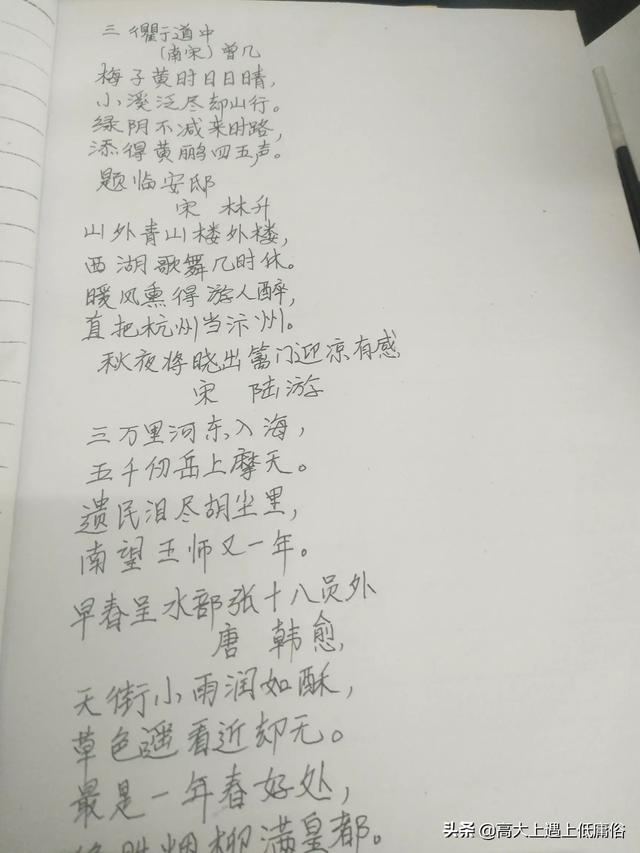 三衢道中
(南宋) 曾几
梅子黄时日日晴,
小溪泛尽却山行。
绿阴不减来时路,
添得黄鹂四五声。
题临安邸
宋 林升
山外青山楼外楼,
西湖歌舞几时休。
暖风熏得游人醉,
直把杭州当汴州。
秋夜将晓出篱门迎凉有感
宋 陆游
三万里河东入海,
五千仞岳上摩天。
遗民泪尽胡尘里,
南望王师又一年。
早春呈水部张十八员外
唐 韩愈
天街小雨润如酥,
草色遥看近却无。
最是一年春好处,
绝胜烟柳满皇都。
头条 @高大上遇上低庸俗